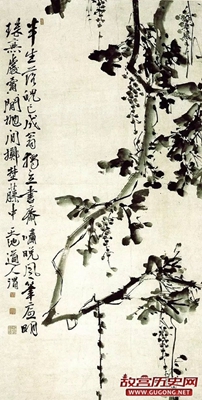 半生落魄已成翁獨立書齋嘯晚風筆底明
珠無處賣閒拋閒擲野藤中 天池道人渭
故宫历史网
WWW.GUGONG.NET